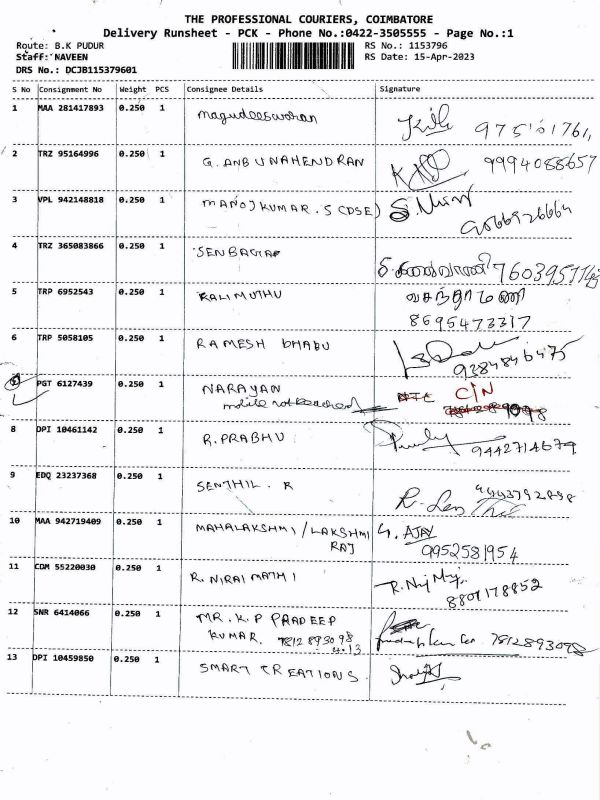 THE PROFESSIONAL COURIERS, COIMBATORE
Delivery Runsheet - PCK - Phone No.:0422-3505555 - Page No.:1
Route: B.K PUDUR RS No.: 1153796
Staff: NAVEEN RS Date: 15-Apr-2023
DRS No.: DCJB115379601
S No Consignment No Weight PCS Consignee Details Signature
1 MAA 281417893 0.250 1 magudeeswaran
2 TRZ 95164996 0.250 1 G. ANBUNAHENDRAN 9994088657
3 VPL 942148818 0.250 1 MANOJKUMAR. S (DSE)
4 TRZ 365083866 0.250 1 SENBAGAP
5 TRP 6952543 0.250 1 KALIMUTHU வசந்தாமணி
8695473317
6 TRP 5058105 0.250 1 RAMESH BHABU
9284846475
7 PGT 6127439 0.250 1 NARAYAN C/N
mobile not Reached
8 DPI 10461142 0.250 1 R. PRABHU
9442714679
9 EDQ 23237368 0.250 1 SENTHIL. R
10 MAA 942719409 0.250 1 MAHALAKSHMI / LAKSHMI G. AJAY
RAJ 9952581954
11 CDM 55220030 0.250 1 R. NIRAIMATHI
8807178852
12 SNR 6414066 0.250 1 MR. K. P PRADEEP
KUMAR. 7812893098 7812893098
4.13
13 DPI 10459850 0.250 1 SMART CREATIONS.